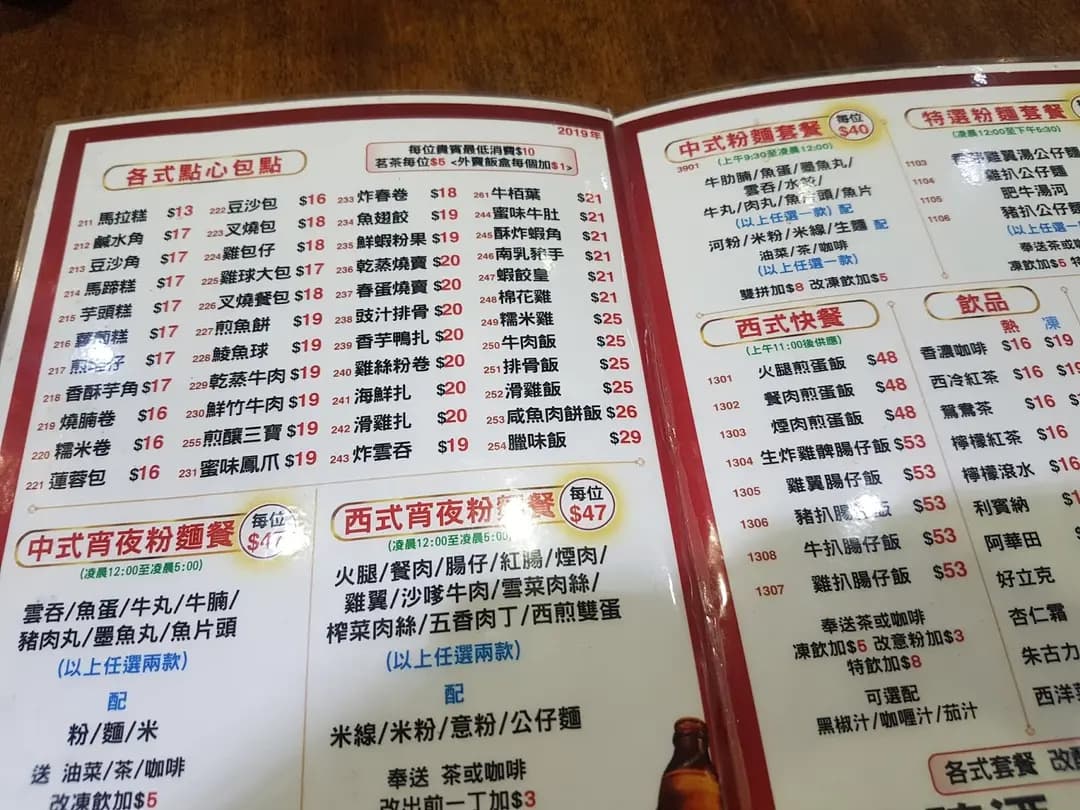 2019年
各式點心包點
每位貴賓最低消費$10
茗茶每位$5 <外賣飯盒每個加$1>
211 馬拉糕 $13
212 鹹水角 $17
213 豆沙角 $17
214 馬蹄糕 $17
215 芋頭糕 $17
216 蘿蔔糕 $17
217 煎堆仔 $17
218 香酥芋角 $17
219 燒腩卷 $16
220 糯米卷 $16
221 蓮蓉包 $16
222 豆沙包 $16
223 叉燒包 $18
224 雞包仔 $18
225 雞球大包 $17
226 叉燒餐包 $18
227 煎魚餅 $19
228 鯪魚球 $19
229 乾蒸牛肉 $19
230 鮮竹牛肉 $19
255 煎釀三寶 $19
231 蜜味鳳爪 $19
233 炸春卷 $18
234 魚翅餃 $19
235 鮮蝦粉果 $19
236 乾蒸燒賣 $20
237 春蛋燒賣 $20
238 豉汁排骨 $20
239 香芋鴨扎 $20
240 雞絲粉卷 $20
241 海鮮扎 $20
242 滑雞扎 $20
243 炸雲吞 $19
261 牛栢葉 $21
244 蜜味牛肚 $21
245 酥炸蝦角 $21
246 南乳豬手 $21
247 蝦餃皇 $21
248 棉花雞 $21
249 糯米雞 $25
250 牛肉飯 $25
251 排骨飯 $25
252 滑雞飯 $25
253 咸魚肉餅飯 $26
254 臘味飯 $29
中式宵夜粉麵餐 每位 $47
(凌晨12:00至凌晨5:00)
雲吞/魚蛋/牛丸/牛腩/
豬肉丸/墨魚丸/魚片頭
(以上任選兩款)
配
粉/麵/米
送 油菜/茶/咖啡
改凍飲加$5
西式宵夜粉麵餐 每位 $47
(凌晨12:00至凌晨5:00)
火腿/餐肉/腸仔/紅腸/煙肉/
雞翼/沙嗲牛肉/雪菜肉絲/
榨菜肉絲/五香肉丁/西煎雙蛋
(以上任選兩款)
配
米線/米粉/意粉/公仔麵
奉送 茶或咖啡
改出前一丁加$3
中式粉麵套餐 每位 $40
(上午9:30至凌晨12:00)
3901 牛肋腩/魚蛋/墨魚丸/
雲吞/水餃/
牛丸/肉丸/魚片頭/魚片
(以上任選一款) 配
河粉/米粉/米線/生麵 配
油菜/茶/咖啡
(以上任選一款)
雙拼加$8 改凍飲加$5
特選粉麵套餐
(凌晨12:00至下午5:30)
1103 雞翼湯公仔麵
1104 雞扒公仔麵
1105 肥牛湯河
1106 豬扒公仔麵
(以上任選一
奉送茶/咖啡
凍飲加$5
西式快餐
(上午11:00後供應)
1301 火腿煎蛋飯 $48
1302 餐肉煎蛋飯 $48
1303 煙肉煎蛋飯 $48
1304 生炸雞髀腸仔飯 $53
1305 雞翼腸仔飯 $53
1306 豬扒腸仔飯 $53
1308 牛扒腸仔飯 $53
1307 雞扒腸仔飯 $53
奉送茶或咖啡
凍飲加$5 改意粉加$3
特飲加$8
可選配
黑椒汁/咖喱汁/茄汁
飲品
熱 凍
香濃咖啡 $16 $19
西冷紅茶 $16 $19
鴛鴦茶 $16
檸檬紅茶 $16
檸檬滾水 $16
利賓納
阿華田
好立克
杏仁霜
朱古力
西洋
各式套餐